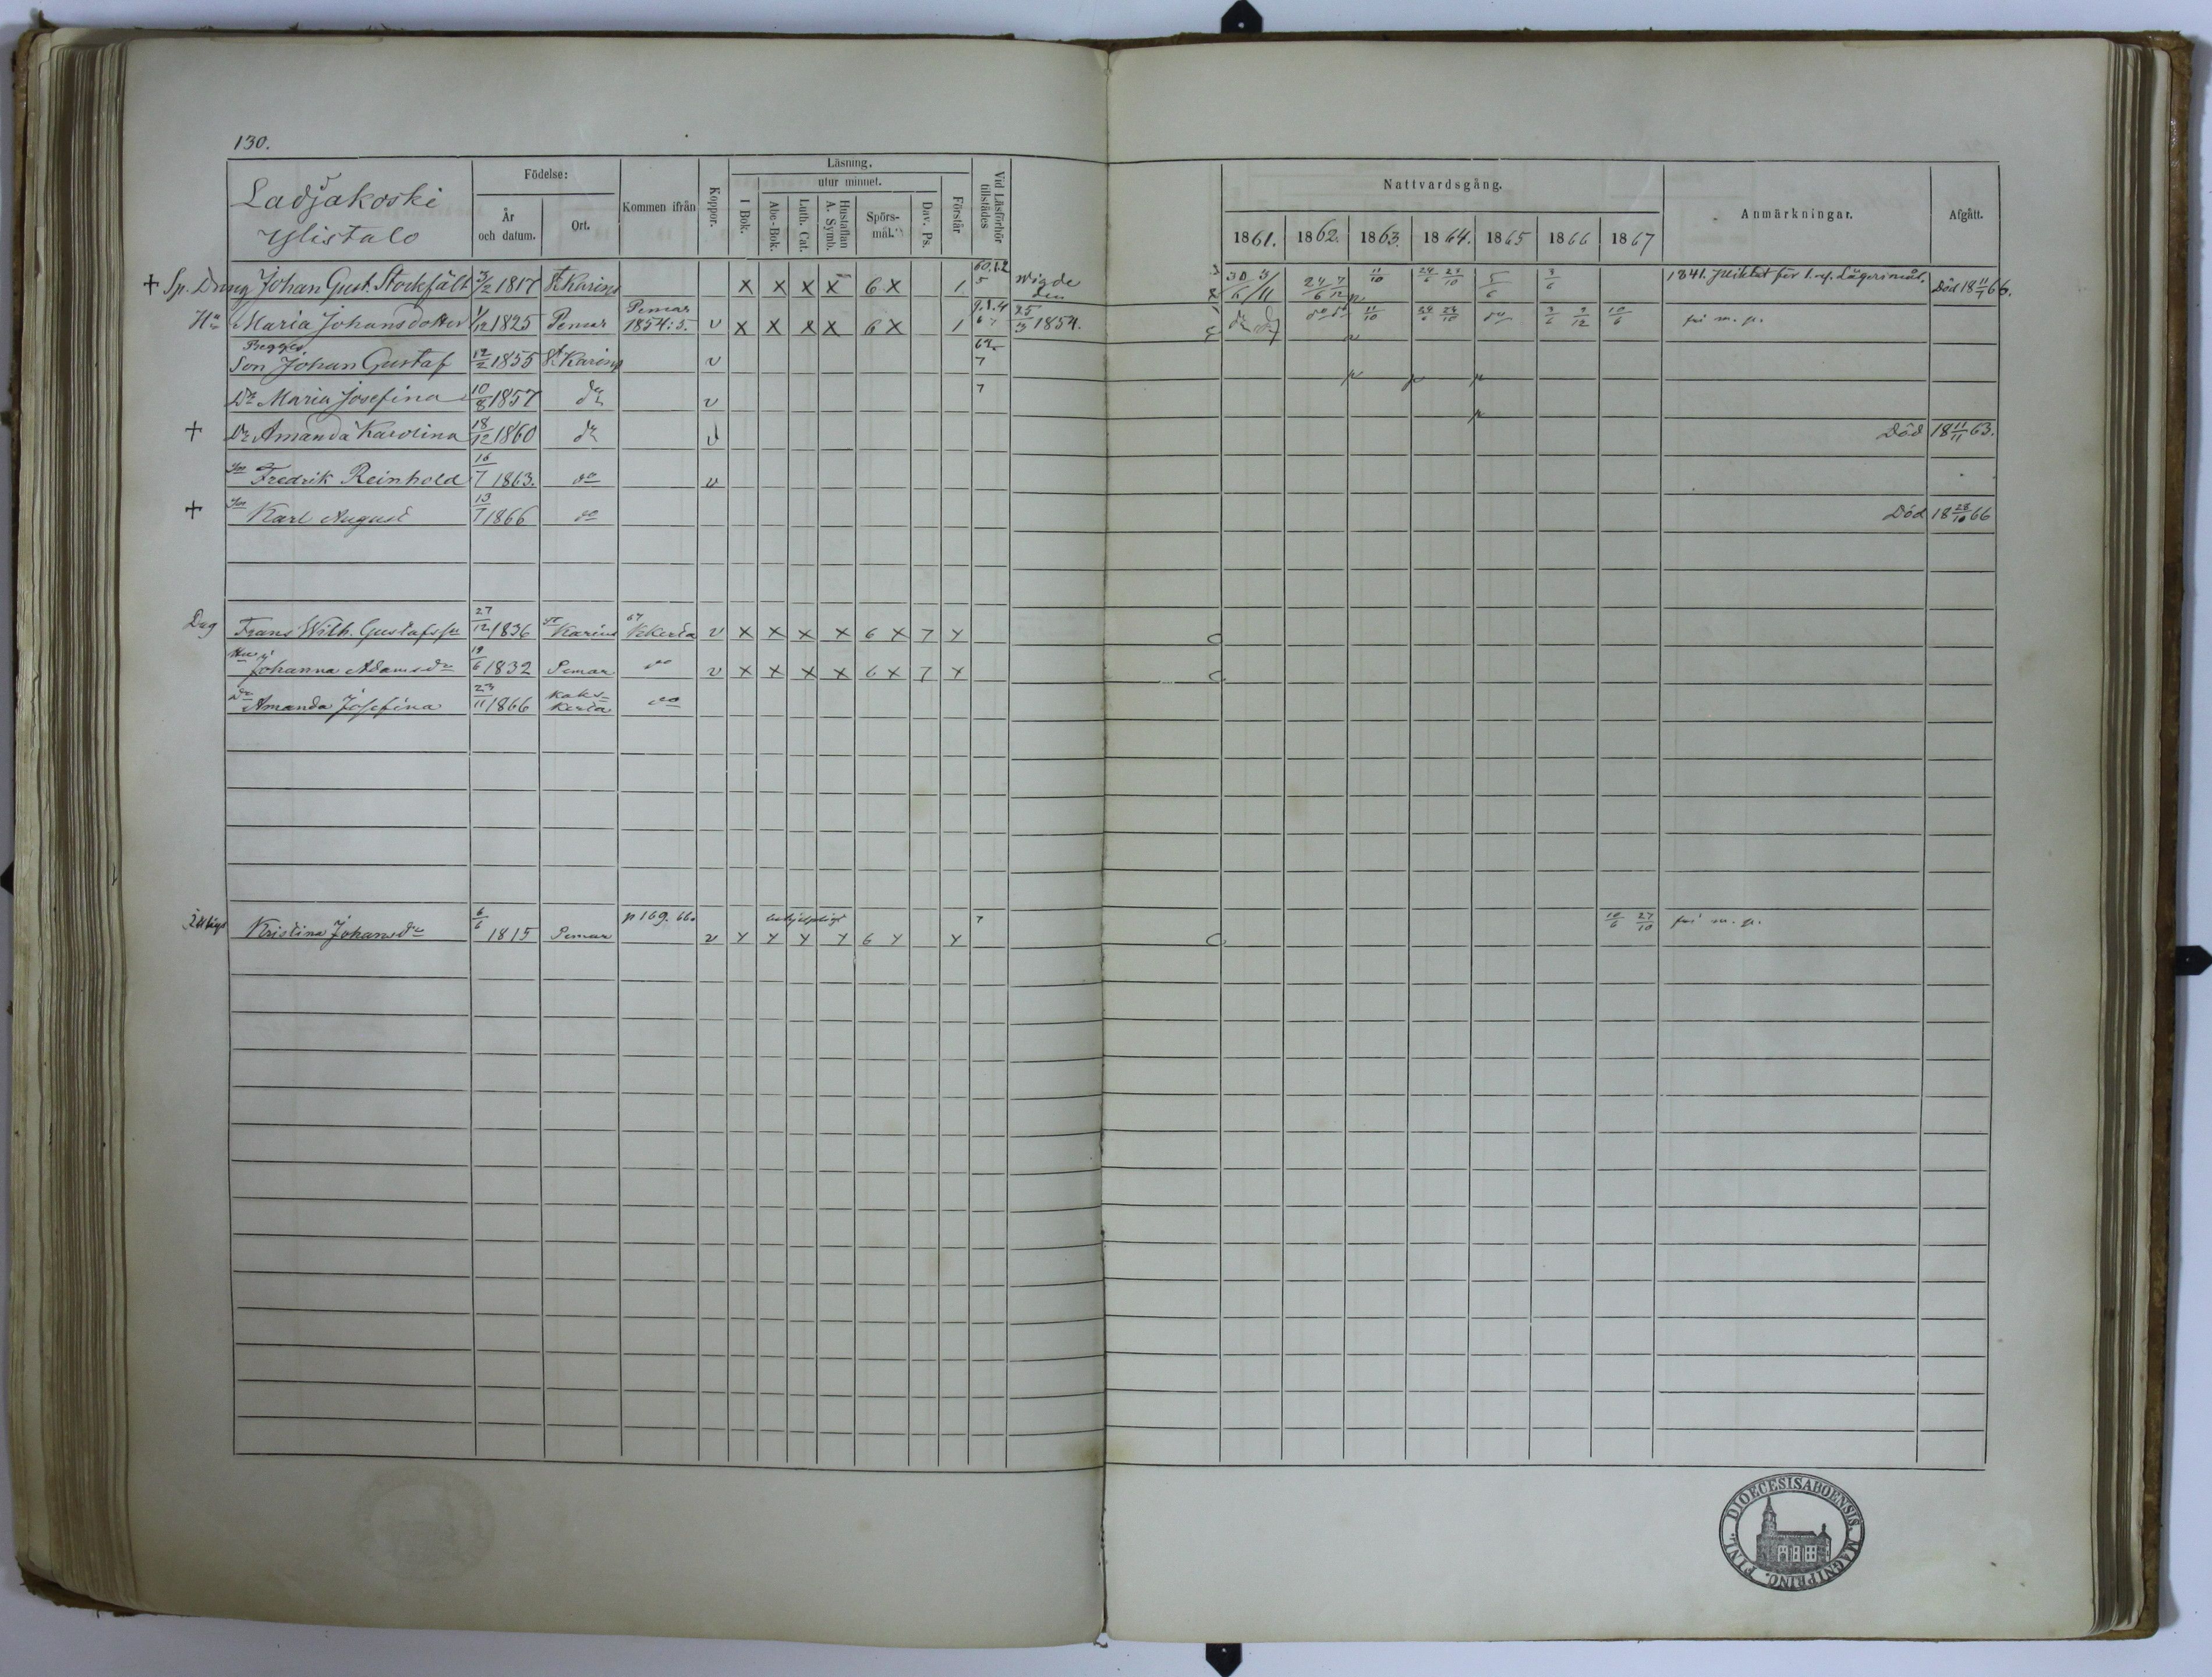 130.
Ladjakoski
Ylistalo
Födelse:
År och datum.
Ort.
Kommen ifrån
Koppor.
Läsning.
utur minnet.
I Bok.
Abc-Bok.
Luth. Cat.
Hustaflan A. Symb.
Spörsmål.
Dav. Ps.
Förstår
Vid Läsförhör tillstädes
Nattvardsgång.
1861. 1862. 1863. 1864. 1865 1866 1867
Anmärkningar.
Afgått.
+ Sp. Dräng Johan Gust. Stockfält 3/2 1817 St Karins X X X X 6 X 1 60.62 5 Wigde den 30/6 3/11 24/6 7/12 11/10 24/6 23/10 5/6 3/6 1841. pliktat för l.af. Lägersmål. Död 18 11/7 66.
Hu Maria Johansdotter 1/12 1825 Pemar Pemar 1854: 5. v X X X X 6 X 1 25/3 1854. do do do do 11/10 24/6 23/10 do 3/6 9/12 10/6 fri m. p.
Begges
Son Johan Gustaf 12/2 1855 St Karins v 7
Dr Maria Josefina 10/8 1857 do v 7
+ Dr Amanda Karolina 18/12 1860 do v Död 18 11/11 63.
Son Fredrik Reinhold 16/7 1863. do v
+ Son Karl August 13/7 1866 do Död 18 28/10 66
Drg Frans Wilh. Gustafsson 27/12 1836 St Karins 67 Kkerta v X X X X 6 X 7 Y
Hu Johanna Adamsdr 19/6 1832 Pemar do v X X X X 6 X 7 Y
Dr Amanda Josefina 23/11 1866 Kakskerta do
Kristina Johansdr 6/6 1815 Pemar p 169. 66. v Y Y Y Y 6 Y Y 7 10/6 27/10 fri m. p.
DIOECESIS ABOENSIS. MAGNI PRINC. FINL.